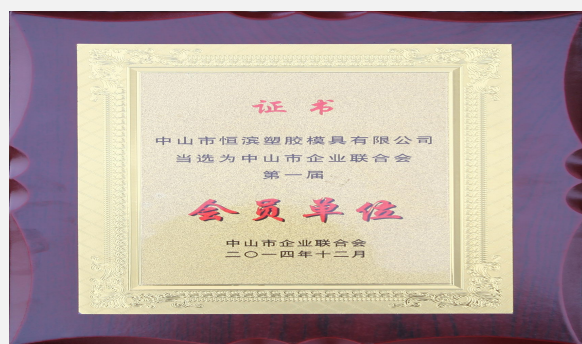 证书
中山市恒滨塑胶模具有限公司
当选为中山市企业联合会
第一届
会员单位
中山市企业联合会
二〇一四年十二月